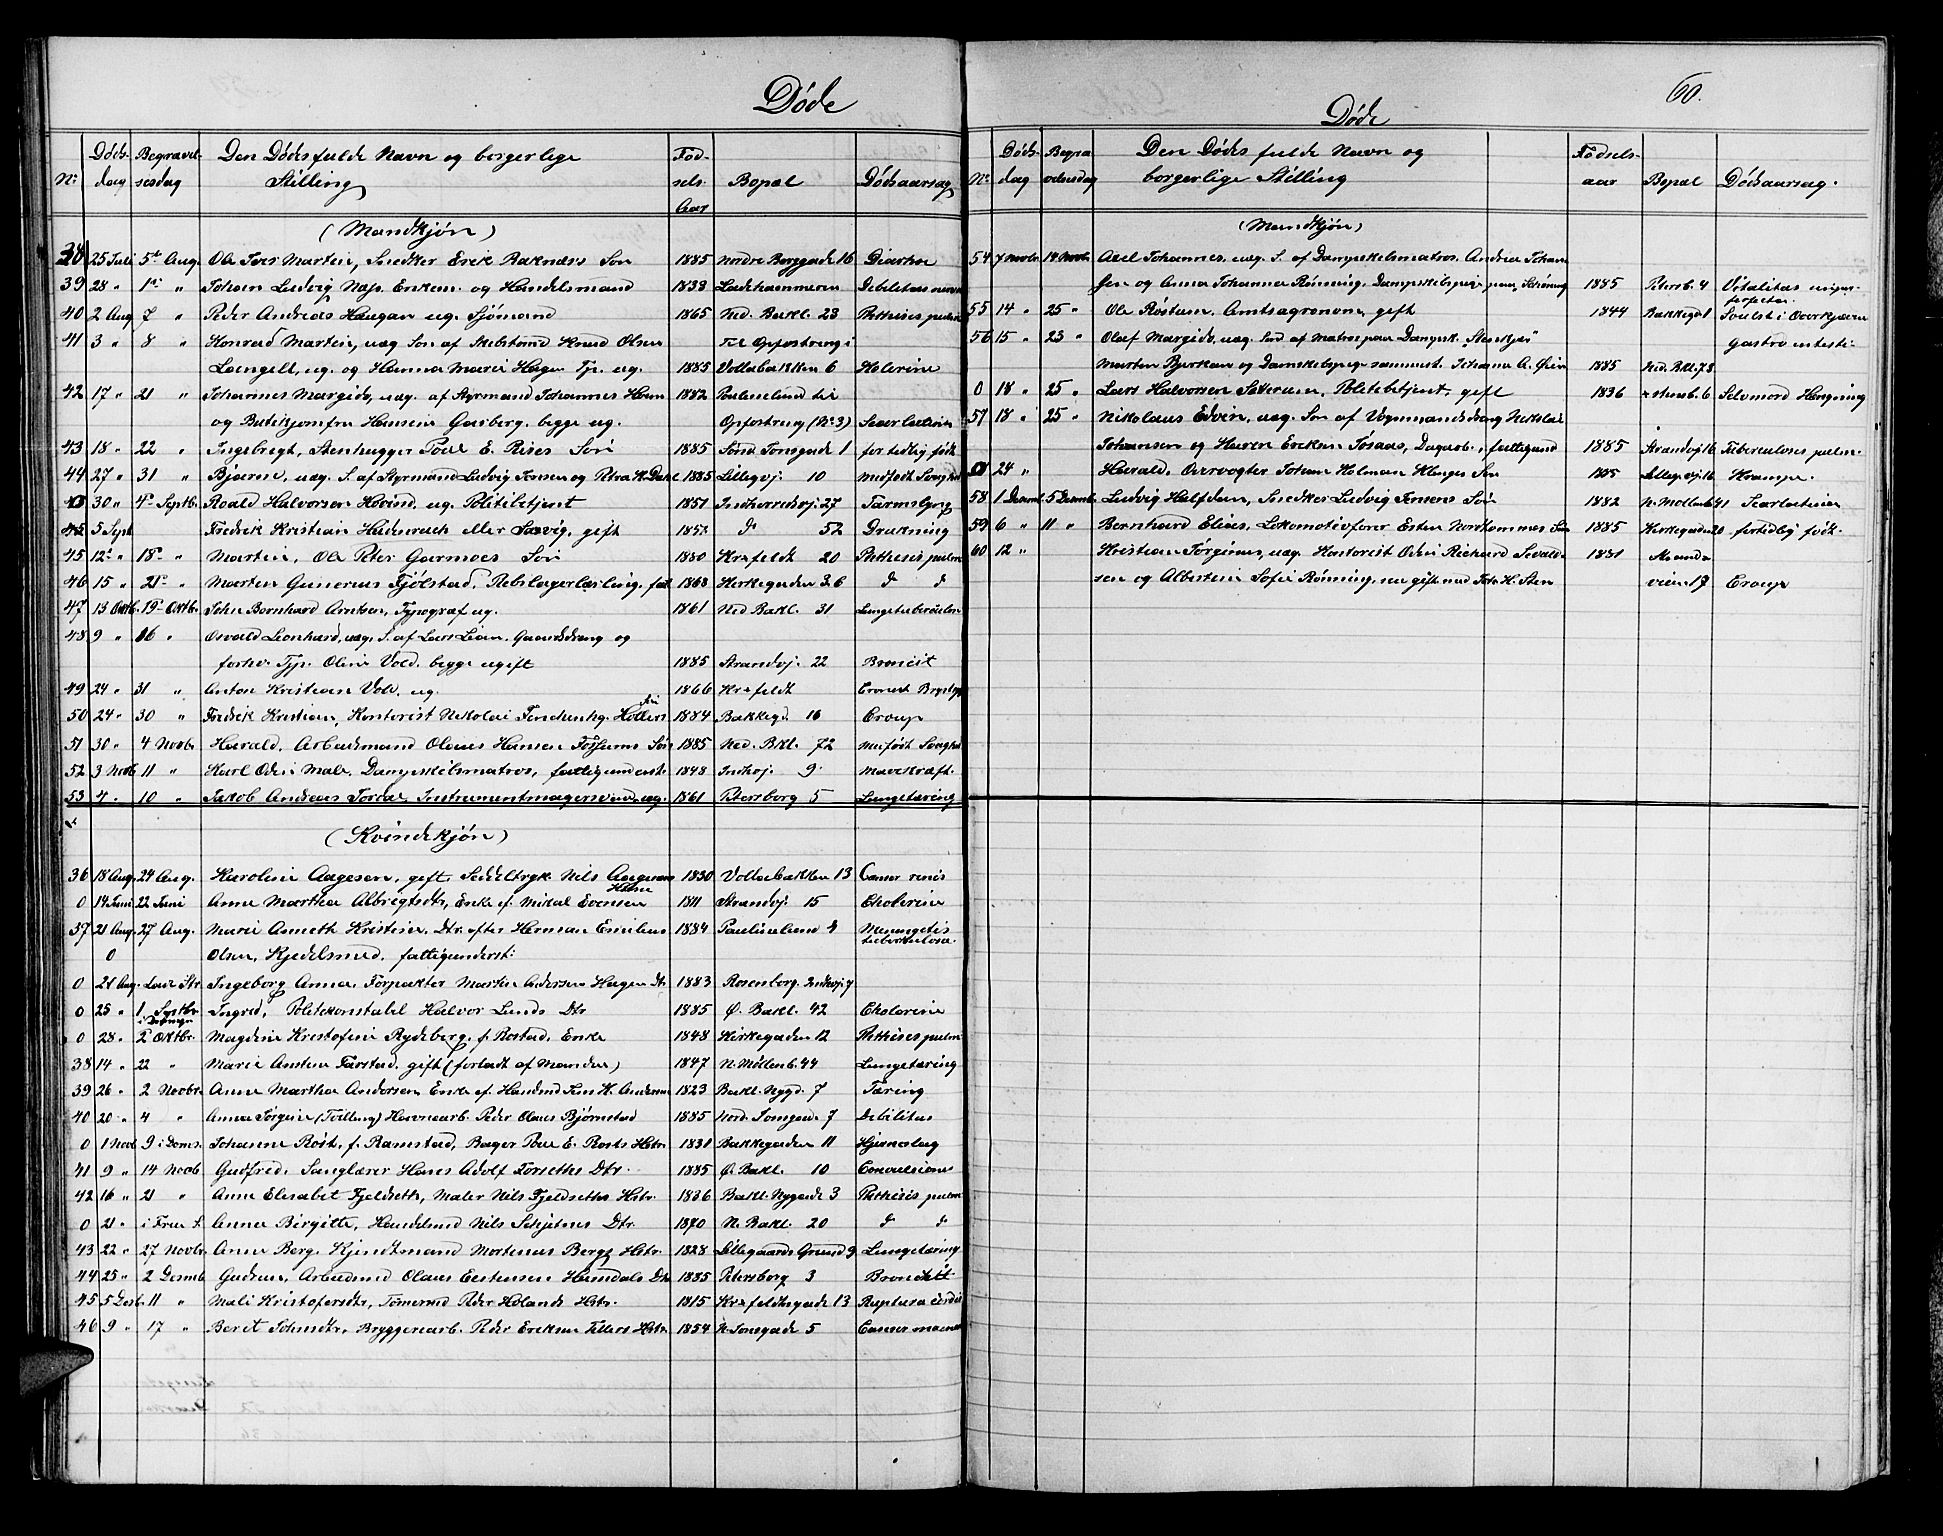 Døde
Døds- Begravel- Den Dødes fulde Navn og borgerlige Fød-
Nr. dag sesdag Stilling sels- Bopæl Dødsaarsag
Aar
(Mandkjøn)
38 25 Juli 5te Aug. Ole Martin, Snedker Erik Søn 1885 Nordre Borggade 16 Diarrhoe
39 28 " 1ste " Johan Ludvig Enkem. og Handelsmand 1833 Ladehammeren Debilitas
40 2 Aug 7 " Peder Andreas Haugan ug. Sjømand 1865 Ned. Bakl. 23 Phthisis pulm.
41 3 " 8 " Konrad Martin, uæg. Søn af Knud Olsen Til Opfostring i
ug. og Hanna Marie Hagen Tp. ug. 1885 Voldabakken 6 Kolerine
42 17 " 21 " Johannes Margido, uæg. af Styrmand Johannes 1882 Paulinelund til
og Butikjomfru Hansine Garberg, begge ug. Opfostring (No 3) Scarlatina
43 18 " 22 " Ingebregt, Stenhugger Poul E. Rises Søn 1885 Sønd. Tonsgade 1 for tidlig født
44 27 " 31 " Bjarne, uæg. S. af Styrmand Ludvig Jensen og Petra K. Dahl 1885 Lillegj. 10 medfødt Svaghed
0 30 " 4de Septbr. Roald Halvorsen Hovind, ug. Politibetjent 1851 Indherredsvj. 27 Tarmslyng
5 Sept Fredrik Kristian eller Sævig, gift 1852 do 52 Drukning
45 12te " 18de " Martin, Ole Peter Garmoes Søn 1880 Kr=feldt 20 Phthisis pulm
46 15 " 21de " Morten Gunerius Fjølstad, Rebslagerlærling, 1868 Kirkegaden 36 do do
47 13 Oktb. 19de Oktbr. John Bernhard Arntsen, Typograf ug. 1861 Ned Bakl. 31
48 9 " 16 " Osvald Leonhard, uæg. S. af Lars Lian, Gaardsdreng og
forhv. Tp. Oline Vold, begge ugift 1885 Strandvj. 22 Bronchit
49 24 " 31 " Anton Kristian Vold, ug. 1866 Kr=feldt
50 24 " 30 " Fredrik Kristian, Kontorist Nikolai Hollers Søn 1884 Bakkegd. 16 Croup
51 30 " 4 Novbr Harald, Arbeidsmand Olaus Hansen Fossums Søn 1885 Ned. Bkl. 72 Medfødt
52 3 Novb 11 " Karl Odin Male, Dampskibsmatros, fattigunderst. 1848 Indhvj. 9 Mavekræft
53 4 " 10 " Jakob Andreas Instrumentmagersvend, ug. 1861 Petersborg 5 Lungetæring
(Kvindekjøn)
36 18 Aug. 24 Aug. Karoline Aagesen, gift, Nils Aagesens Hustru 1830 Voldabakken 13 Cancer renis
0 14 Juni 22 Juni Anne Martha Albrigtsdtr, Enke ef. Mikal Evensen 1811 Strandvj. 15 Cholerine
37 21 Aug. 27 Aug. Marie Anneth Kristine, Dtr. efter Herman Emilius 1884 Paulinelund 4 Meningitis
0 Olsen, Kjedelsmed, fattigunderst: tuberkulosa
0 21 Aug. Ingeborg Anna, Forpakter Martin Andersen Hagen Dtr 1883 Rosenborg Indhvj 7
0 25 " 1 Septbr. i Domk. Ingrid, Politikonstabel Halvor Lunds Dtr 1885 Ø. Bakl. 42 Cholerine
0 28 " 2 Oktbr. Magdine Kristofine Rydeberg, f. Rostad, Enke 1848 Kirkegaden 12 Phthisis pulm
38 14 " 22 " Marie Antine Farstad, gift (forladt af Manden) 1847 N. Møllenb. 44 Lungetæring
39 26 " 2 Novbr. Anne Martha Andersen, Enke ef. Handsmd Jens H. Andersen 1823 Bakl. Nygd. 7 Tæring
40 20 " 4 " Anna Jørgine (Tvilling) Havnearb. Peder Olaus Bjørnstad 1885 Nord. Tonsgade 7 Debilitas
0 1 Novb 9 i Doms. Johanne Rost, f. Ramstad, Bager Poul E. Rosts Hstr. 1831 Bakkegaden 11 Hjerneslag
41 9 " 14 Novb Gudfred, Sanglærer Hans Adolf Forseths Dtr. 1885 Ø. Bakl. 10 Convulsione
42 16 " 21 " Anne Elisabet Fjeldseth, Maler Nils Fjeldseths Hstr. 1836 Bakl. Nygade 3 Phthisis pulm
0 21 " i Frue K. Anna Birgitte, Handelsmd Nils Schjetnes Dtr. 1870 N. Bakl. 20 do do
43 22 " 27 Novbr. Anne Berg, Kjendtmand Mortinus Bergs Hstr. 1828 Lillegaards Grund 9 Lungetæring
44 25 " 2 Decmb Gudrun, Arbeidsmd Olaus Eestensen Hemdals Dtr 1885 Petersborg 3 Bronchit
45 5 Decb. 11 " Mali Kristofersdtr, Tømremd Peder Holands Hstr. 1815 Kr=feldtsgade 13 Ruptura cordis
46 9 " 17 " Beret Johnsdtr, Bryggeriarb. Peder Eriksen Tillers Hstr. 1854 N. Tonsgade 5 Cancer
60.
Døde
Døds- Begra Den Dødes fulde Navn og Fødsels-
No. dag velsesdag borgerlige Stilling aar Bopæl Dødsaarsag.
(Mandkjøn)
54 7 Novbr. 14 Novbr. Axel Johannes, uæg. S. af Dampskibsmatros Andreas Johan
sen og Anna Johanna Rønning, Dampskibspige paa 1885 Petersb. 4 Vitalitas
55 14 " 25 " Ole Røstum, Amtsagronom, gift 1844 Bakkegd 1
56 15 " 23 " Olaf Margido, uæg. Søn af Matros paa Dampsk. "Stenkjær" gastro intesti:
Morten Bjerkan og Damskibspige sammest. Johanna A. Øien 1885 Ned. Bkl. 78
0 18 " 25 " Lars Halvorsen Sæteraas, Politibetjent, gift 1836 6 Selvmord Hængning
57 18 " 25 " Nikolaus Edvin, uæg. Søn af Vognmandsdreng Nikolai
Johansen og Karen Eriksen Tosaas, Dagarb., fattigund 1885 Strandvj 16 Tuberculosis pulm.
0 24 " Harald, Overvogter Johan Holman Søn 1885 Lillegj 16 Krampe.
58 1 Decmb. 5 Decmb. Ludvig Halfdan, Snedker Ludvig Søn 1882 N. Møllenb 41 Scarlatina
59 6 " 11 " Bernhard Elias, Lokomotivfører Esten Nordhammer Søn 1885 Kirkegaden 20 fortidlig født.
60 12 " Kristian Jørginus, uæg. Kontorist Odin Rickard Sivald- 1881
sen og Albertine Sofie Rønning, nu gift med Joh. H. Sten veien 17 Croup